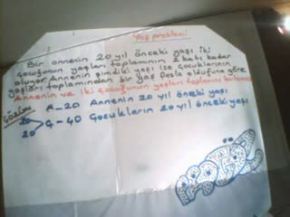 Yaş problemi
Bir annenin 20 yıl önceki yaşı iki
çocuğunun yaşları toplamının 2 katı kadar
oluyor. Annenin şimdiki yaşı ise çocuklarının
yaşları toplamından bir yaş fazla olduğuna göre
Annenin ve iki çocuğunun yaşları toplamını bulunuz
Çözüm
A-20 Annenin 20 yıl önceki yaşı
20 Ç-40 Çocukların 20 yıl önceki yaşı